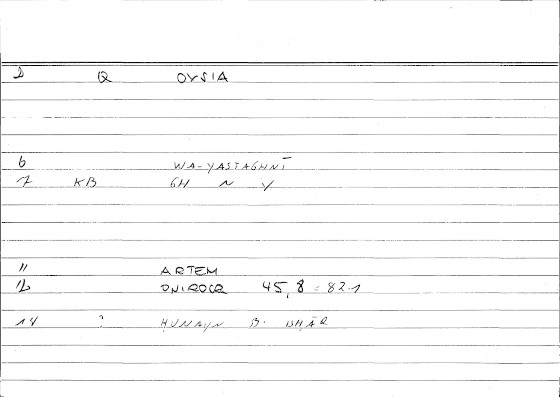 D Q OYSIA
6 WA-YASTAGHNĪ
7 KB GH N Y
11 ARTEM
12 ONIROCR 45,8 = 82-1
14 ? ḤUNAYN B. ISḤĀQ